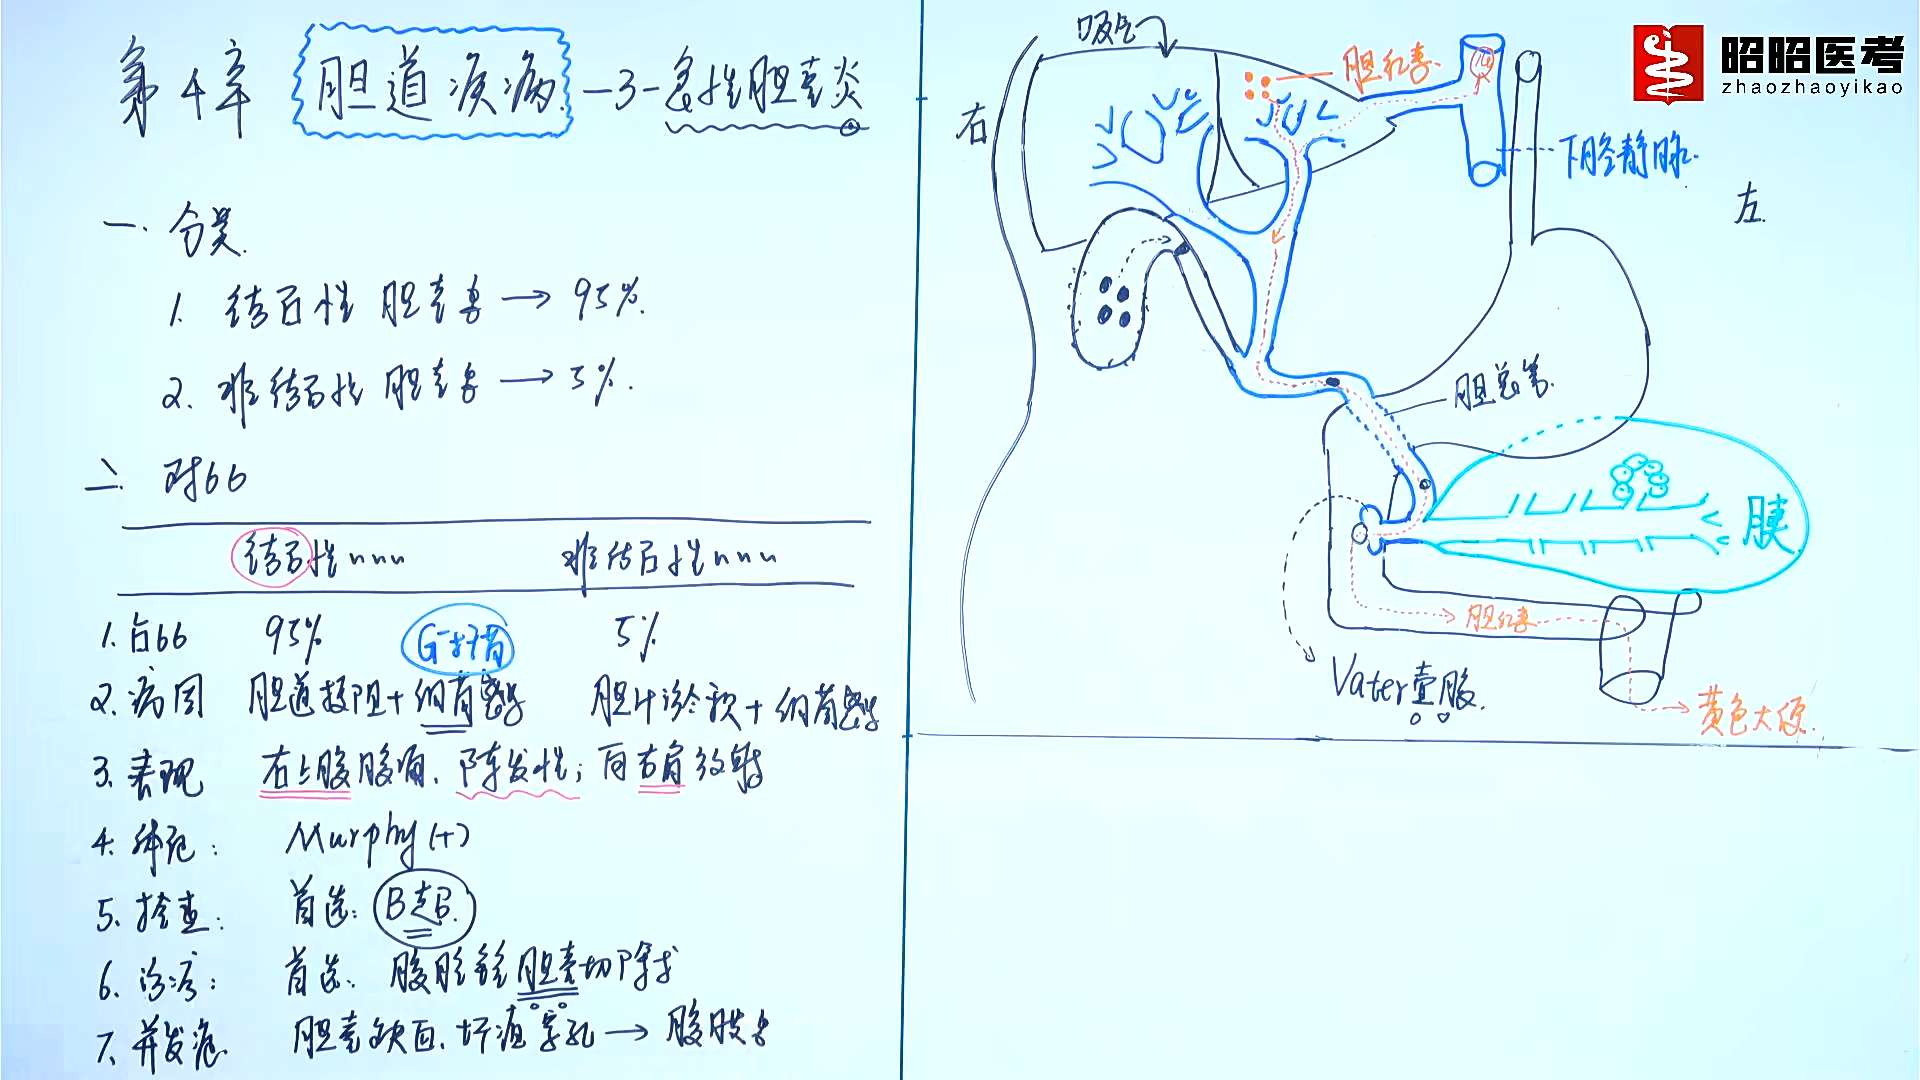 第4章 胆道疾病-3-急性胆囊炎
一、分类
1. 结石性胆囊炎→95%
2. 非结石性胆囊炎→5%
二、对比
结石性 非结石性
1. 占比 95% 5%
G-杆菌
2. 病因 胆道梗阻+细菌感染 胆汁淤积+细菌感染
3. 表现 右上腹腹痛、阵发性；向右肩放射
4. 体征： Murphy(+)
5. 检查： 首选：B超
6. 治疗： 首选：腹腔镜胆囊切除术
7. 并发症 胆囊缺血、坏疽穿孔→腹膜炎
吸气
右
胆红素
下腔静脉
左
胆总管
胰
胆红素
Vater壶腹
黄色大便
昭昭医考
zhaozhaoyikao